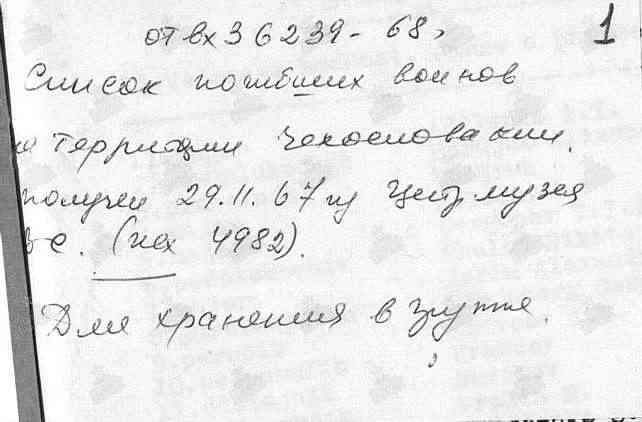 от вх 36239 - 68,
1
Список погибших воинов
на территории Чехословакии.
получен 29.11.67 из Центр музея
ВС. (исх 4982).
Для хранения в группе.